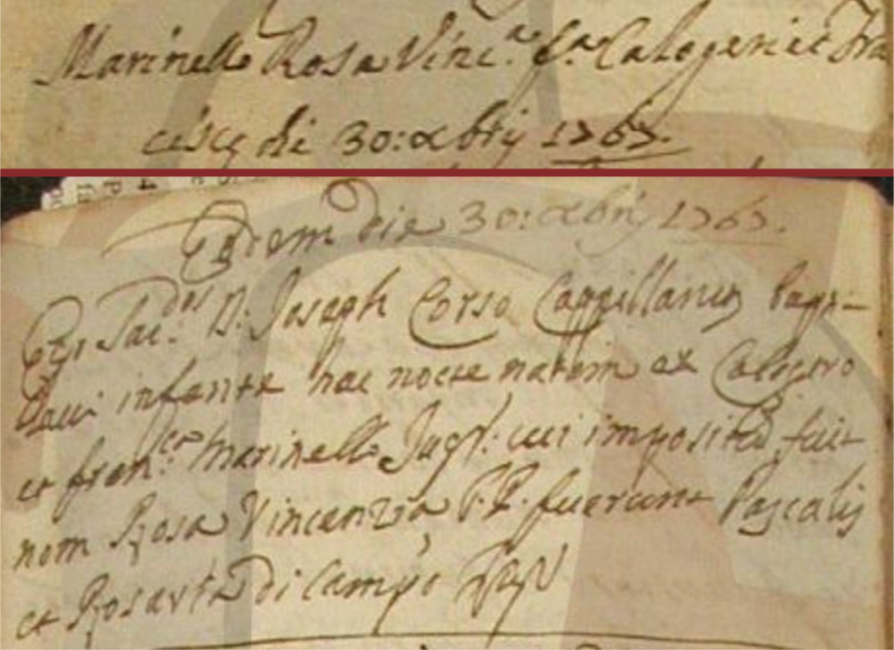 Marinello Rosa Vinc.ª f.ª Calogeri et Fra
cisce die 30: Xbris 1767.
Eodem die 30: Xbris 1767.
Ego Sac.dos D: Joseph Corso Cappillanus bapti-
zavi infante hac nocte natam ex Calogero
et Fran.ca Marinello Jug: cui impositu fuit
nom Rosa Vincenza P.P. fuerunt Pascalis
et Rosaria di Campo